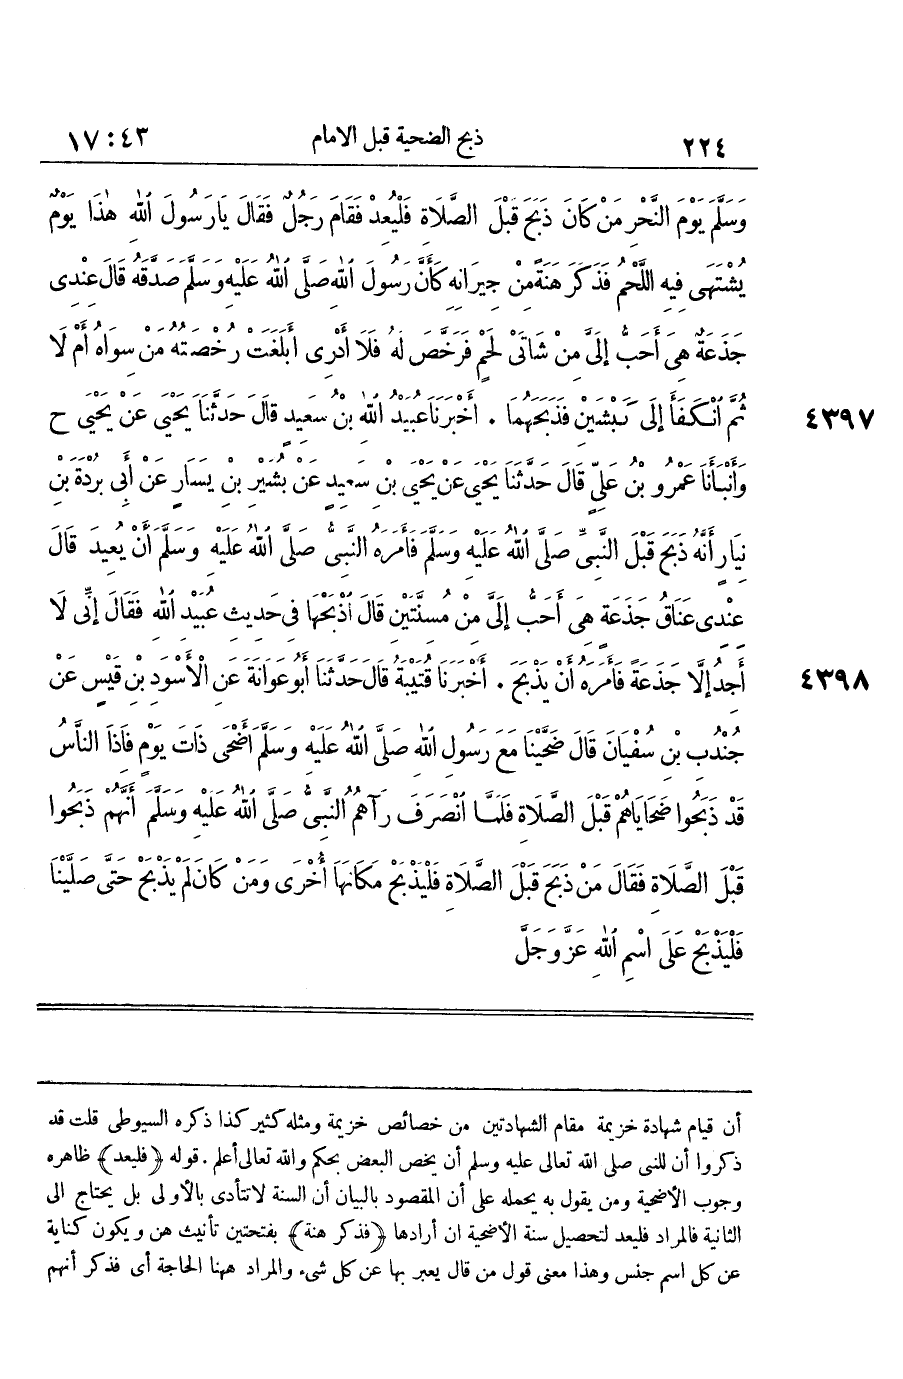 ٢٢٤ ذبح الضحية قبل الامام ٤٣ : ١٧
وَسَلَّمَ يَوْمَ النَّحْرِ مَنْ كَانَ ذَبَحَ قَبْلَ الصَّلَاةِ فَلْيُعِدْ فَقَامَ رَجُلٌ فَقَالَ يَارَسُولَ اللهِ هٰذَا يَوْمٌ
يُشْتَهَى فِيهِ اللَّحْمُ فَذَكَرَ هَنَةً مِنْ جِيرَانِهِ كَأَنَّ رَسُولَ اللهِ صَلَّى اللهُ عَلَيْهِ وَسَلَّمَ صَدَّقَهُ قَالَ عِنْدِى
جَذَعَةٌ هِىَ أَحَبُّ إِلَىَّ مِنْ شَاتَىْ لَحْمٍ فَرَخَّصَ لَهُ فَلَا أَدْرِى أَبَلَغَتْ رُخْصَتُهُ مَنْ سِوَاهُ أَمْ لَا
ثُمَّ انْكَفَأَ إِلَى كَبْشَيْنِ فَذَبَحَهُمَا . أَخْبَرَنَا عُبَيْدُ اللهِ بْنُ سَعِيدٍ قَالَ حَدَّثَنَا يَحْيَى عَنْ يَحْيَى ح ٤٣٩٧
وَأَنْبَأَنَا عَمْرُو بْنُ عَلِيٍّ قَالَ حَدَّثَنَا يَحْيَى عَنْ يَحْيَى بْنِ سَعِيدٍ عَنْ بُشَيْرِ بْنِ يَسَارٍ عَنْ أَبِى بُرْدَةَ بْنِ
نِيَارٍ أَنَّهُ ذَبَحَ قَبْلَ النَّبِىِّ صَلَّى اللهُ عَلَيْهِ وَسَلَّمَ فَأَمَرَهُ النَّبِىُّ صَلَّى اللهُ عَلَيْهِ وَسَلَّمَ أَنْ يُعِيدَ قَالَ
عِنْدِى عَنَاقُ جَذَعَةٍ هِىَ أَحَبُّ إِلَىَّ مِنْ مُسِنَّتَيْنِ قَالَ اذْبَحْهَا فِى حَدِيثِ عُبَيْدِ اللهِ فَقَالَ إِنِّى لَا
أَجِدُ إِلَّا جَذَعَةً فَأَمَرَهُ أَنْ يَذْبَحَ . أَخْبَرَنَا قُتَيْبَةُ قَالَ حَدَّثَنَا أَبُو عَوَانَةَ عَنِ الْأَسْوَدِ بْنِ قَيْسٍ عَنْ ٤٣٩٨
جُنْدُبِ بْنِ سُفْيَانَ قَالَ ضَحَّيْنَا مَعَ رَسُولِ اللهِ صَلَّى اللهُ عَلَيْهِ وَسَلَّمَ أَضْحَى ذَاتَ يَوْمٍ فَاذَا النَّاسُ
قَدْ ذَبَحُوا ضَحَايَاهُمْ قَبْلَ الصَّلَاةِ فَلَمَّا انْصَرَفَ رَآهُمُ النَّبِىُّ صَلَّى اللهُ عَلَيْهِ وَسَلَّمَ أَنَّهُمْ ذَبَحُوا
قَبْلَ الصَّلَاةِ فَقَالَ مَنْ ذَبَحَ قَبْلَ الصَّلَاةِ فَلْيَذْبَحْ مَكَانَهَا أُخْرَى وَمَنْ كَانَ لَمْ يَذْبَحْ حَتَّى صَلَّيْنَا
فَلْيَذْبَحْ عَلَى اسْمِ اللهِ عَزَّ وَجَلَّ
أن قيام شهادة خزيمة مقام الشهادتين من خصائص خزيمة ومثله كثير كذا ذكره السيوطى قلت قد
ذكروا أن للنبى صلى الله تعالى عليه وسلم أن يخص البعض بحكم والله تعالى أعلم . قوله ﴿فليعد﴾ ظاهره
وجوب الأضحية ومن يقول به يحمله على أن المقصود بالبيان أن السنة لاتتأدى بالأولى بل يحتاج الى
الثانية فالمراد فليعد لتحصيل سنة الأضحية ان أرادها ﴿فذكر هنة﴾ بفتحتين تأنيث هن ويكون كناية
عن كل اسم جنس وهذا معنى قول من قال يعبر بها عن كل شىء والمراد ههنا الحاجة أى فذكر أنهم